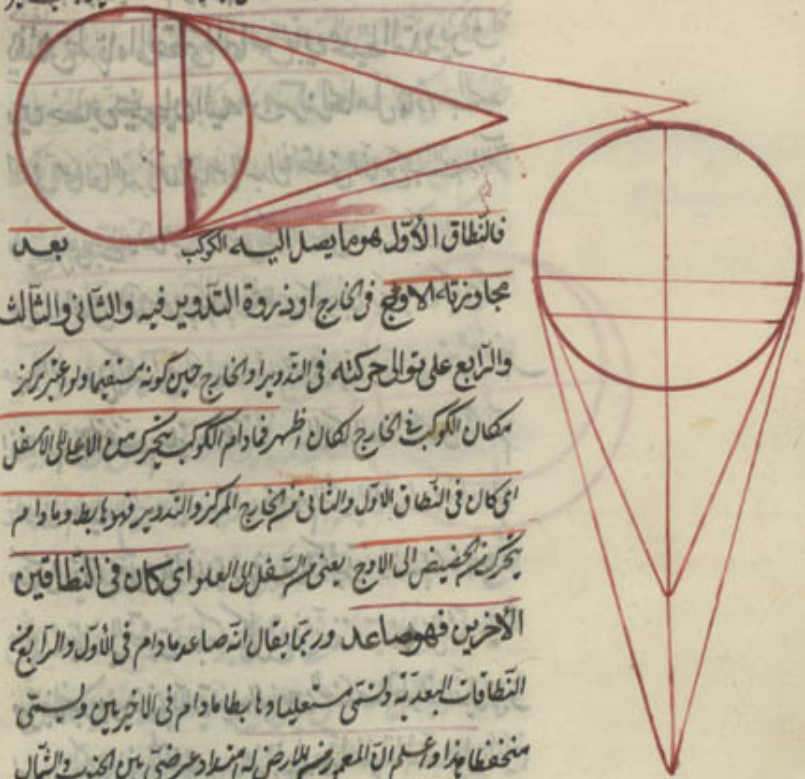 فالنطاق الأوّل هو ما يصل اليه الكوكب بعد
مجاوزته الاوج فى الخارج او ذروة التّدوير فيه والثّانى والثّالث
والرّابع على توالى حركته فى التّدوير او الخارج حين كونه مستقيما ولو اعتبر مركز
مكان الكوكب فى الخارج لكان اظهر فما دام الكوكب يتحرك من الاعلى الى الاسفل
اى كان فى النّطاق الاوّل والثانى من الخارج المركز والتدوير فهو هابط وما دام
يتحرك من الحضيض الى الاوج يعنى من السّفل الى العلو اى كان فى النّطاقين
الأخرين فهو صاعد وربّما يقال انّه صاعد ما دام فى الأوّل والرّابع من
النّطاقات البعديّة ويسمّى مستعليا وهابط ما دام فى الاخيرين ويسمّى
منخفضا هذا واعلم انّ المعمور من الارض له امتداد عرضىّ بين الجنوب والشّمال